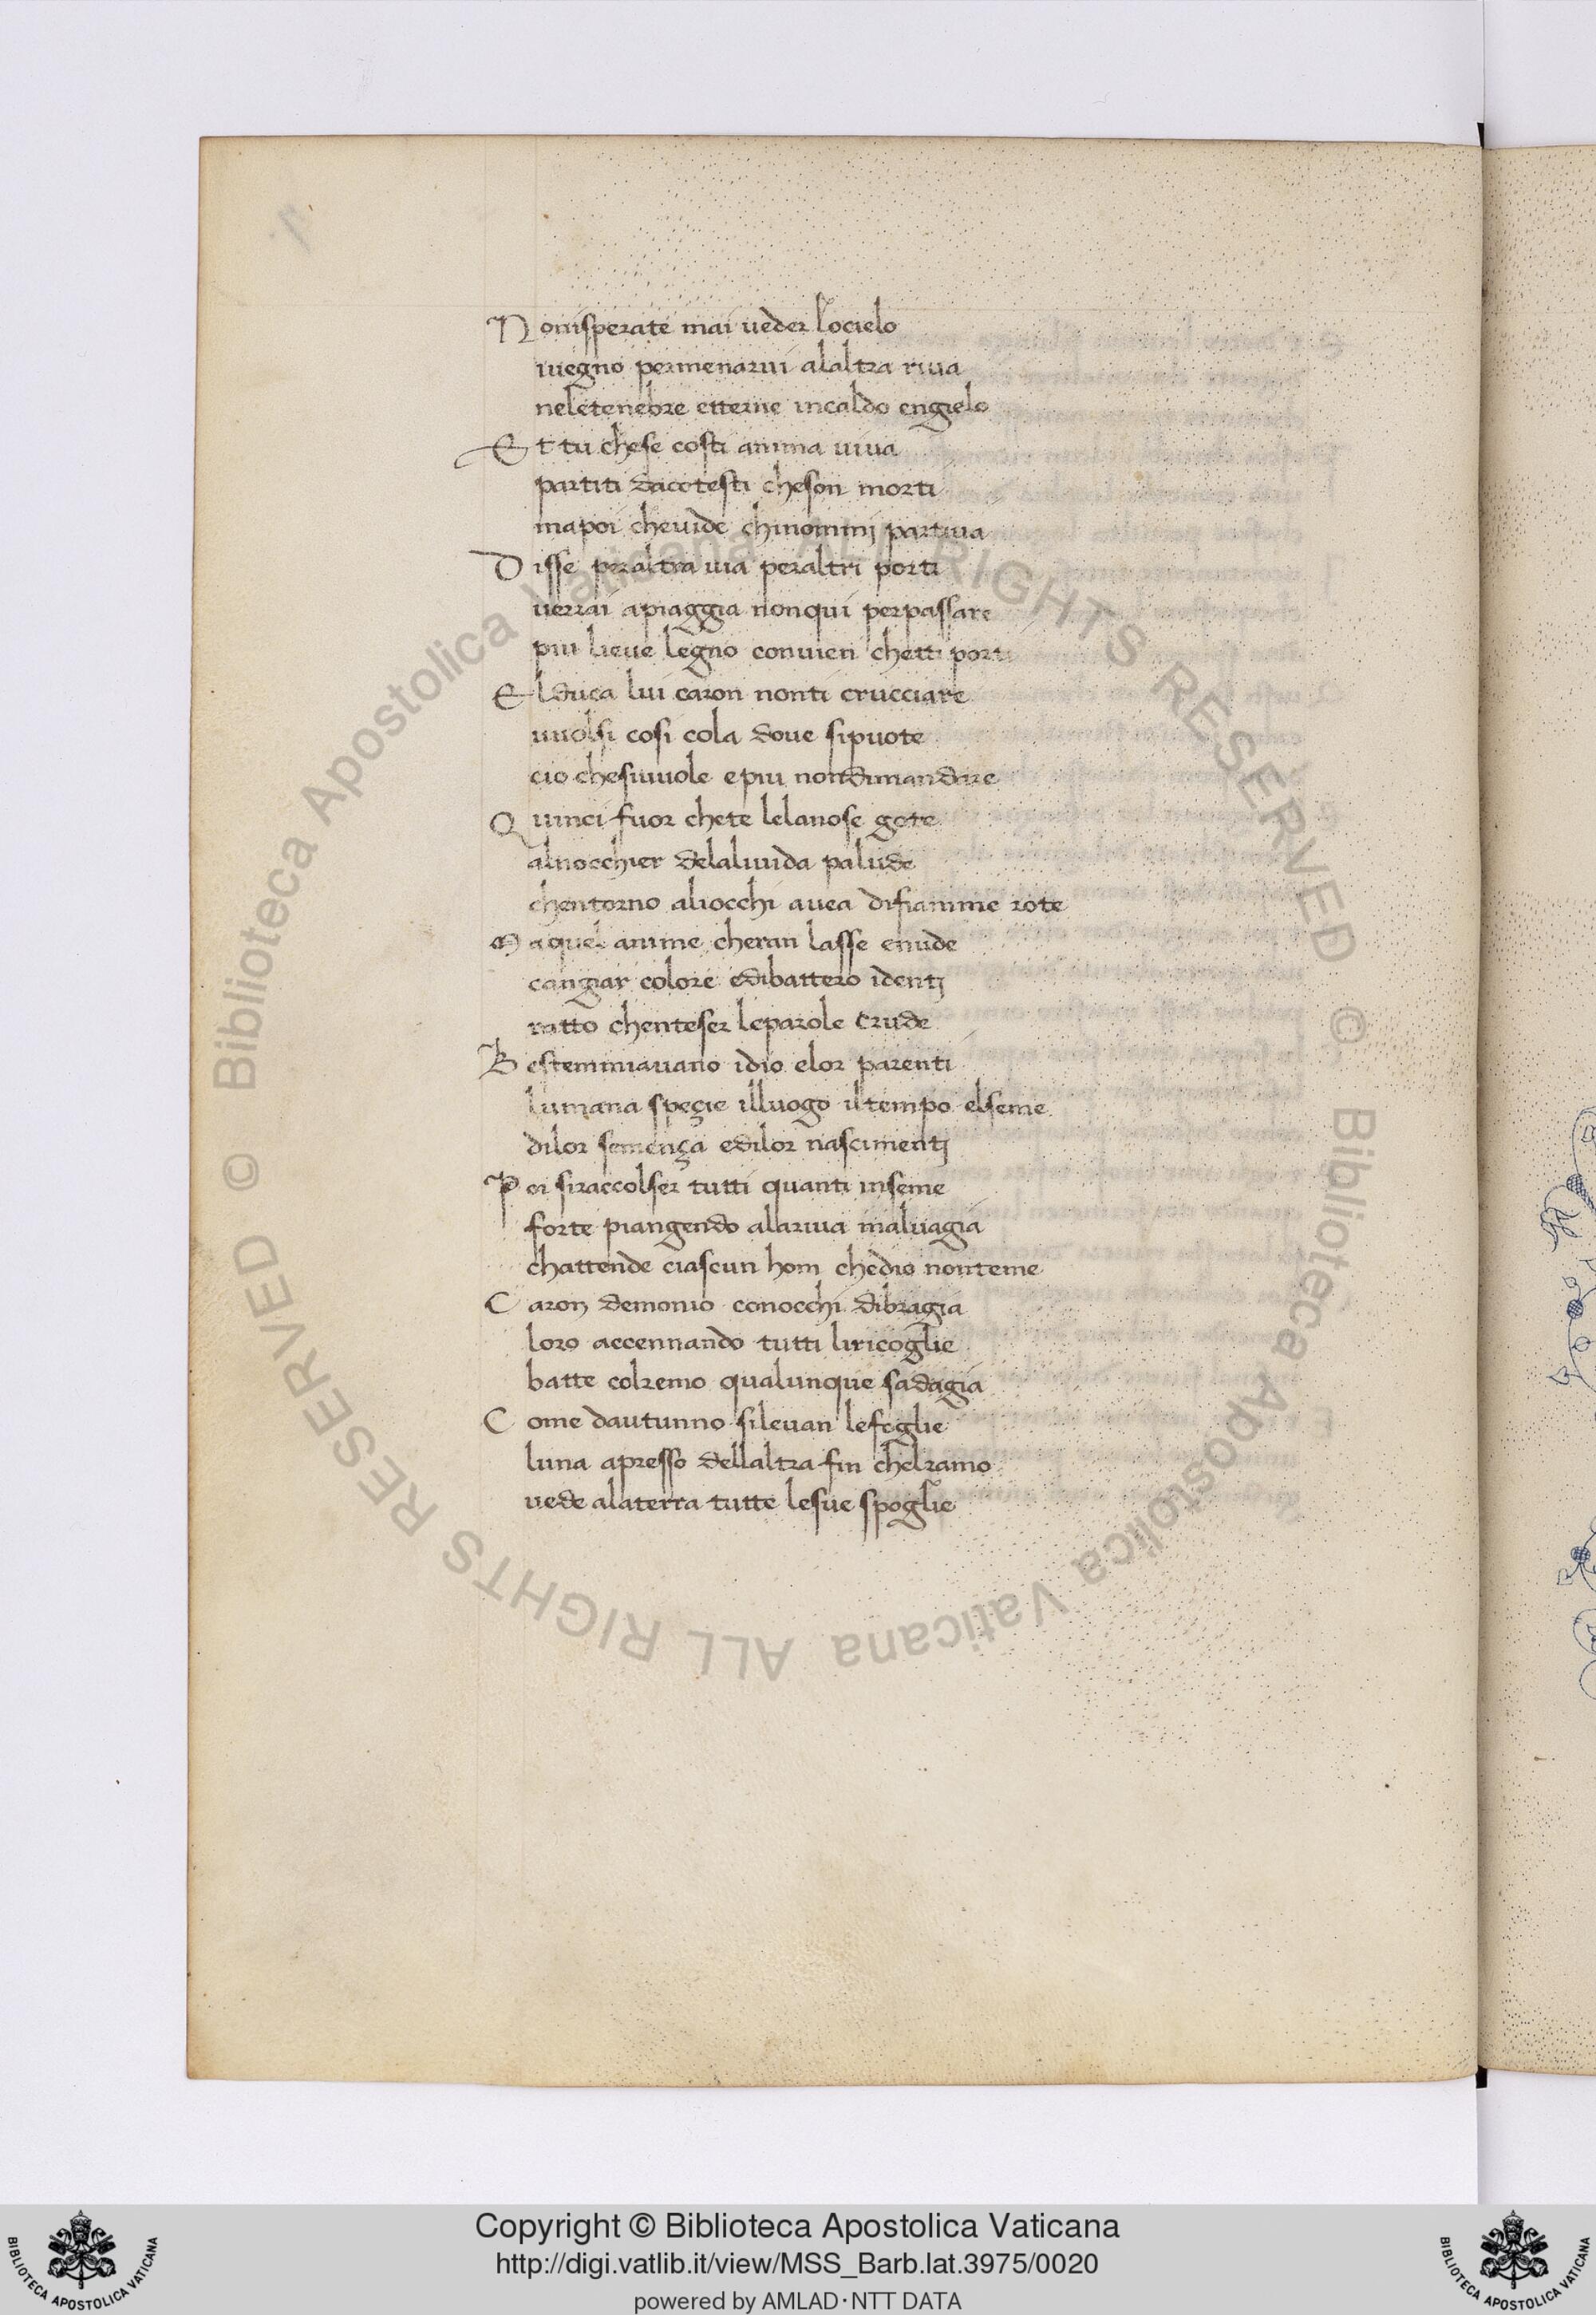 Nonisperate mai ueder locielo
iuegno permenarui alaltra riua
neletenebre etterne incaldo engielo
Et tu chese costi anima viua
partiti dacotesti cheson morti
mapoi cheuide chinommj partiua
Disse peraltra uia peraltri porti
uerrai apiaggia nonqui perpassare
piu lieue legno conuien chetti porti
El duca lui caron nonti crucciare
vuolsi cosi cola doue sipuote
cio chesiuuole epiu nondimandare
Quinci fuor chete lelanose gote
alnocchier delaliuida palude
chentorno aliocchi auea difiamme rote
Maquel anime cheran lasse enude
cangiar colore edibattero identj
ratto chenteser leparole crude
Bestemmiauano idio elor parenti
lumana speçie illuogo iltempo elseme
dilor semença edilor nascimentj
Poi siraccolser tutti quanti inseme
forte piangendo alariua maluagia
chattende ciascun hom chedio nonteme
Caron demonio conocchi dibragia
loro accennando tutti liricoglie
batte colremo qualunque sadagia
Come dautunno sileuan lefoglie
luna apresso dellaltra fin chelramo
uede alaterra tutte lesue spoglie
© Biblioteca Apostolica Vaticana ALL RIGHTS RESERVED © Biblioteca Apostolica Vaticana ALL RIGHTS RESERVED
Copyright © Biblioteca Apostolica Vaticana
http://digi.vatlib.it/view/MSS_Barb.lat.3975/0020
powered by AMLAD·NTT DATA
BIBLIOTECA APOSTOLICA VATICANA
BIBLIOTECA APOSTOLICA VATICANA